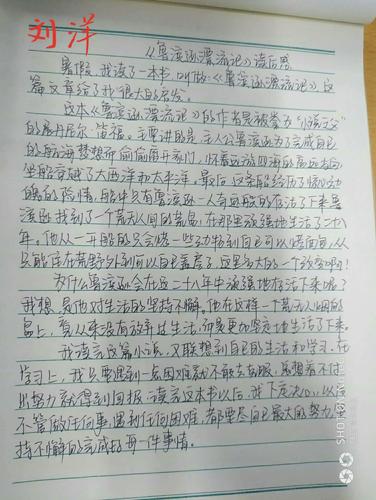 刘洋
《鲁滨逊漂流记》读后感
暑假,我读了一本书,叫做《鲁滨逊漂流记》,这
篇文章给了我很大的启发。
这本《鲁滨逊漂流记》的作者是被誉为"小说之父"
的展丹尼尔·笛福。主要讲的是主人公鲁滨逊为了完成自己
的航海梦想而偷偷离开家门,怀着远游四海的高远志向,
坐船穿越了大西洋和太平洋。最后,这条船经历了惊心动
魄的险情,船中只有鲁滨逊一人奇迹般的存活了下来鲁
滨逊找到了一个荒无人烟的荒岛,在那里顽强地生活了二十八
年。他从一开始的只会烤一些动物到自己可以烤面包,从
只能住在荒野外到可以自己盖房子,这是多大的一个改变啊!
为什么鲁滨逊会在这二十八年中顽强地存活下来呢?
我想是他对生活的坚持不懈。他在这样一个荒无人烟的
岛上,看从来没有放弃过生活,而是更加坚定地生活了下来。
我读完这篇小说,又联想到自己的生活和学习,在
学习上,我只要遇到一点困难就不敢去克服,总想着不付
出努力就得到回报。读完这本书以后,我下定决心,以后
不管做任何事,遇到任何困难,都要尽自己最大的努力坚
持不懈的完成好每一件事情。
SHOT ON